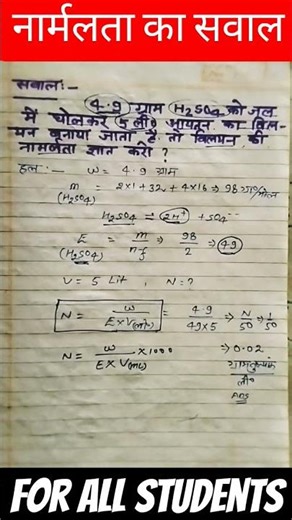 नार्मलता का सवाल
सवाल:-
4.9 ग्राम H₂SO₄ को जल
में घोलकर 5 ली० आयतन का विल-
यन बनाया जाता है तो विलयन की
नार्मलता ज्ञात करो ?
हल:- w = 4.9 ग्राम
m (H₂SO₄) = 2×1 + 32 + 4×16 ⇒ 98 ग्रा०/मोल
H₂SO₄ ⇌ 2H⁺ + SO₄⁻⁻
E (H₂SO₄) = m/n.f ⇒ 98/2 ⇒ 49
V = 5 Lit , N = ?
N = w/E×V(lit) = 4.9/49×5 ⇒ N/50 ⇒ 1/50
N = w/E×V(ml) ×1000 ⇒ 0.02
ग्रामतुल्यांक/ली०
Ans
FOR ALL STUDENTS